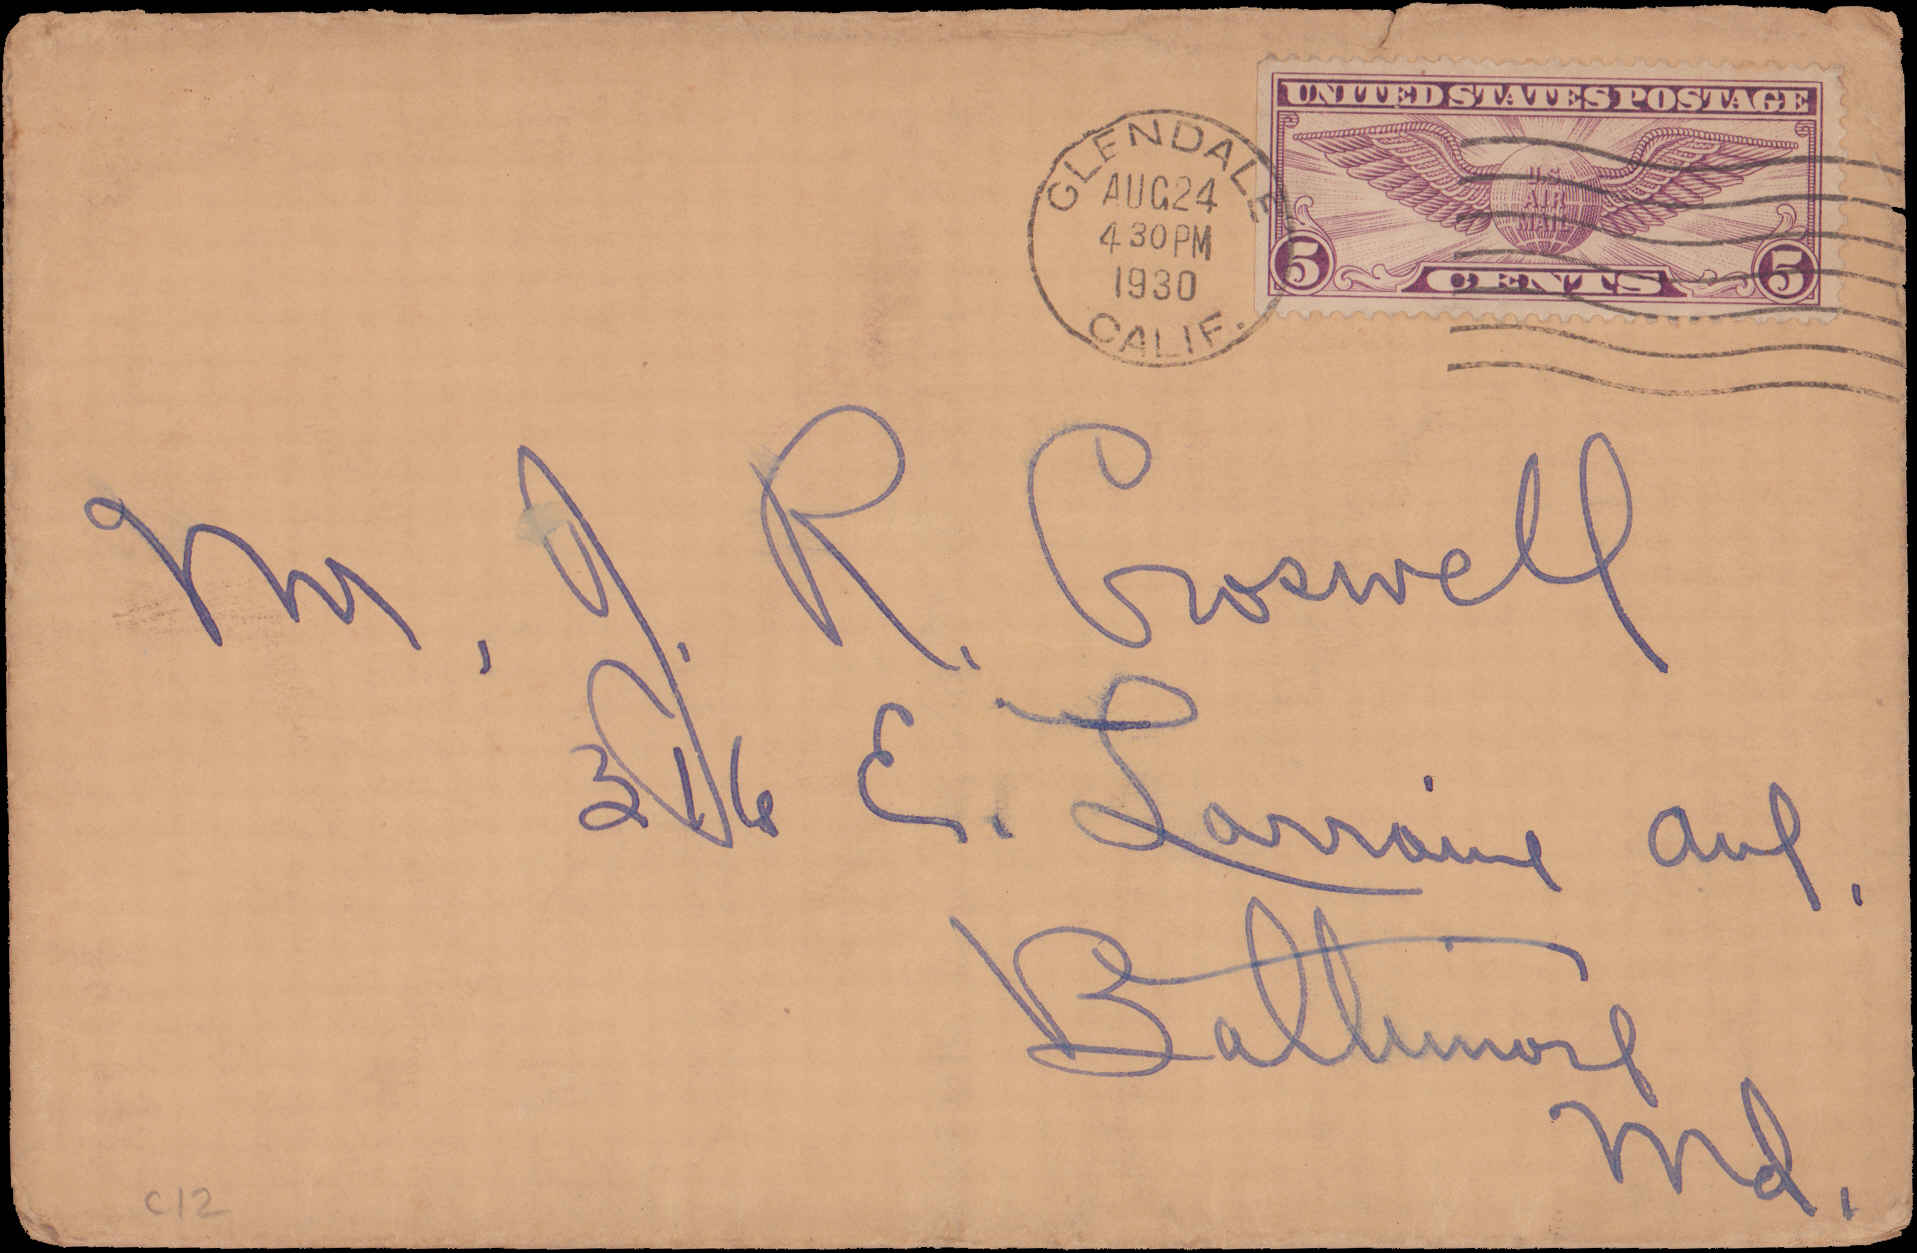 UNITED STATES POSTAGE
U.S.
AIR
MAIL
5 CENTS 5
GLENDALE
AUG 24
4 30 PM
1930
CALIF.
Mr. J. R. Croswell
316 E. Lorraine Ave.
Baltimore
Md.
C12